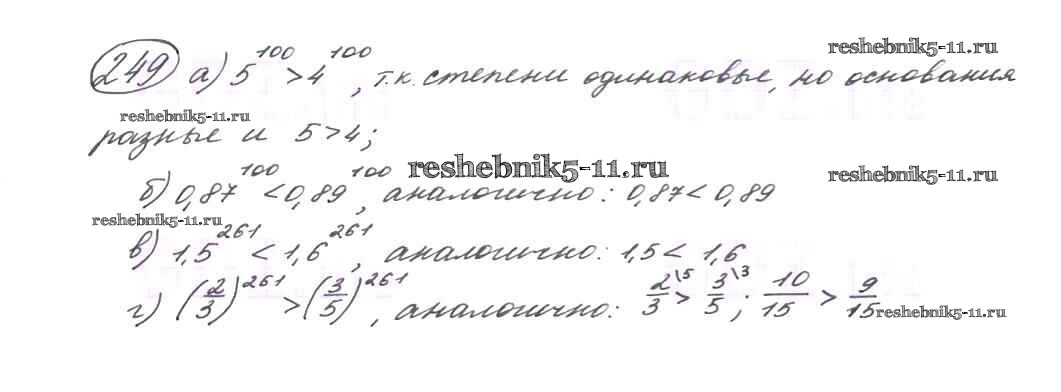 reshebnik5-11.ru
249 а) 5^100 > 4^100, т.к. степени одинаковые, но основания
reshebnik5-11.ru
разные и 5>4;
reshebnik5-11.ru
reshebnik5-11.ru
б) 0,87^100 < 0,89^100, аналогично: 0,87 < 0,89
reshebnik5-11.ru
в) 1,5^261 < 1,6^261, аналогично: 1,5 < 1,6
г) (2/3)^261 > (3/5)^261, аналогично: 2\5/3 > 3\3/5; 10/15 > 9/15
reshebnik5-11.ru